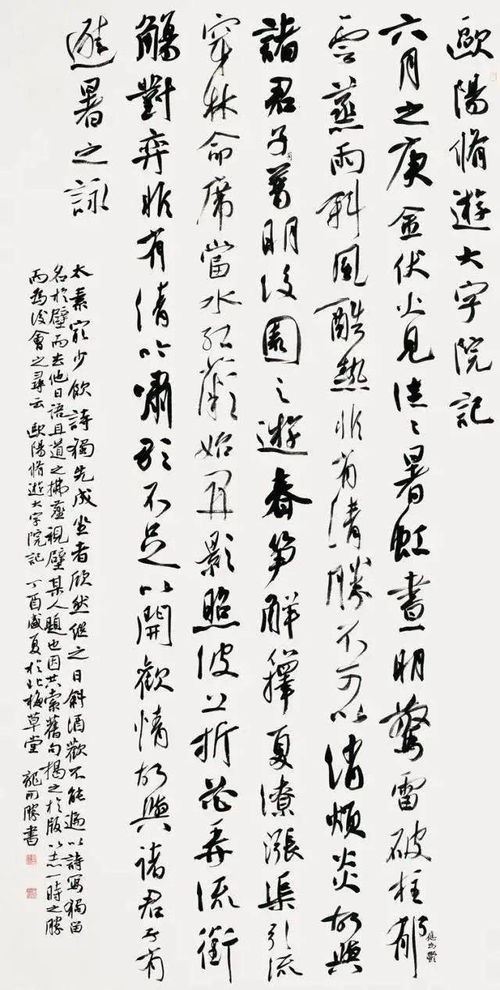 歐陽脩遊大字院記
六月之庚金伏火見往往暑虹晝明驚雷破柱郁
應為鬱
雲蒸雨斜風酷熱非有清勝不可以消煩炎故與
諸君子普明後園之遊春笋解籜夏潦漲渠引流
穿林命席當水紅薇始開影照波上折花弄流銜
觴對弈非有清吟嘯歌不足以開歡情故與諸君子有
避暑之詠
太素最少飲詩獨先成坐者欣然繼之日斜酒歡不能遍以詩寫獨留
名於壁而去他日語且道之拂塵視壁某人題也因共索舊句揭之於版以志一時之勝
而為後會之尋云 歐陽脩遊大字院記 丁酉盛夏於北梅草堂 龍開勝書